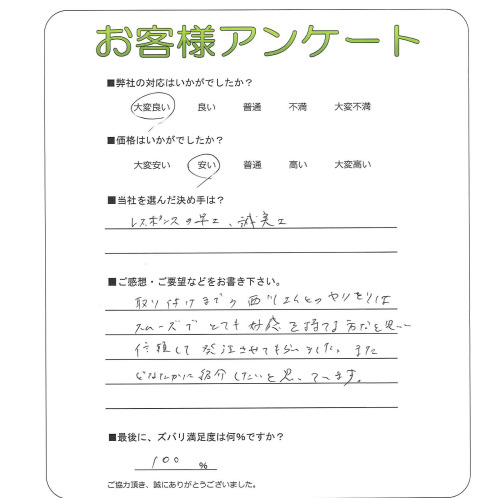 お客様アンケート
■弊社の対応はいかがでしたか？
大変良い 良い 普通 不満 大変不満
■価格はいかがでしたか？
大変安い 安い 普通 高い 大変高い
■当社を選んだ決め手は？
レスポンスの早さ、誠実さ
■ご感想・ご要望などをお書き下さい。
取り付けまでの西川さんとのやりとりは
スムーズでとても好感を持てる方だなと思い
信頼して発注させてもらいました。また
どなたかに紹介したいと思っています。
■最後に、ズバリ満足度は何%ですか？
100 %
ご協力頂き、誠にありがとうございました。